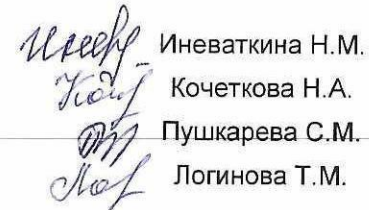 Иневаткина Н.М.
Кочеткова Н.А.
Пушкарева С.М.
Логинова Т.М.